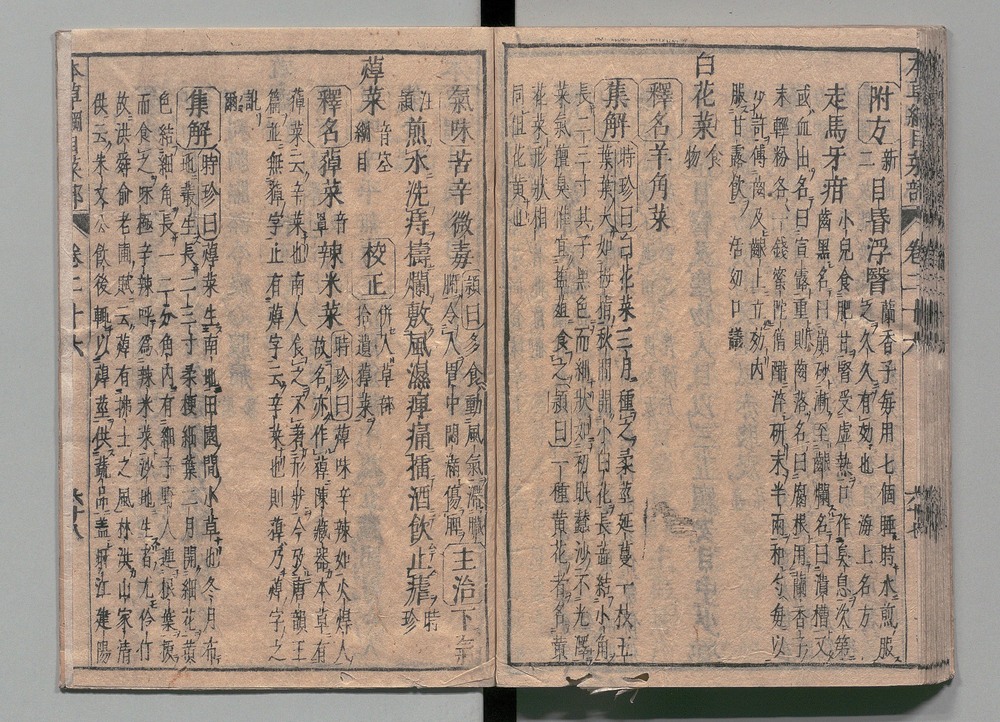 附方新二 目昏浮瞖 蘭香子每用七個睡時水煎服
之久久有効也 海上名方
走馬牙疳 小兒食肥甘腎受虛熱口作臭息次第
齒黑名曰崩砂漸至齦爛名曰潰槽又
或血出名曰宣露重則齒落名曰腐根用蘭香子
末輕粉各一錢蜜陀僧醋淬研末半兩和勻每以
少許傅齒及齦上立効內
服甘露飲 活幼口議
白花菜 食物
釋名羊角菜
集解 時珍曰白花菜三月種之柔莖延蔓一枝五
葉葉大如拇指秋間開小白花長蕊結小角
長二三寸其子黑色而細狀如初眠蠶沙不光澤
菜氣羶臭惟宜鹽菹食之 穎曰一種黃花者名黃
花菜形狀相
同但花黃也
氣味苦辛微毒 穎曰多食動風氣滯臟
腑令人胃中悶滿傷脾 主治下氣
注煎水洗痔擣爛敷風濕痺痛擂酒飲止瘧 時珍
穎
蔊菜 音罕 綱目 校正 併入草部
拾遺蔊菜
釋名蔊菜 音罩 辣米菜 時珍曰蔊味辛辣如火焊人
故名亦作蔊陳藏器本草有
蔊菜云辛菜也南人食之不著形狀今攷唐韻玉
篇並無蔊字止有䓻字云辛菜也則蔊乃䓻字之
訛爾
集解 時珍曰蔊菜生南地田園間小草也冬月布
地叢生長二三寸柔梗細葉三月開細花黃
色結細角長一二分角內有細子野人連根葉拔
而食之味極辛辣呼爲辣米菜沙地生者尤伶仃
故洪舜俞老圃賦云蔊有拂士之風林洪山家清
供云朱文公飲後輒以蔊莖供蔬品蓋盱江建陽
本草綱目菜部 卷二十六